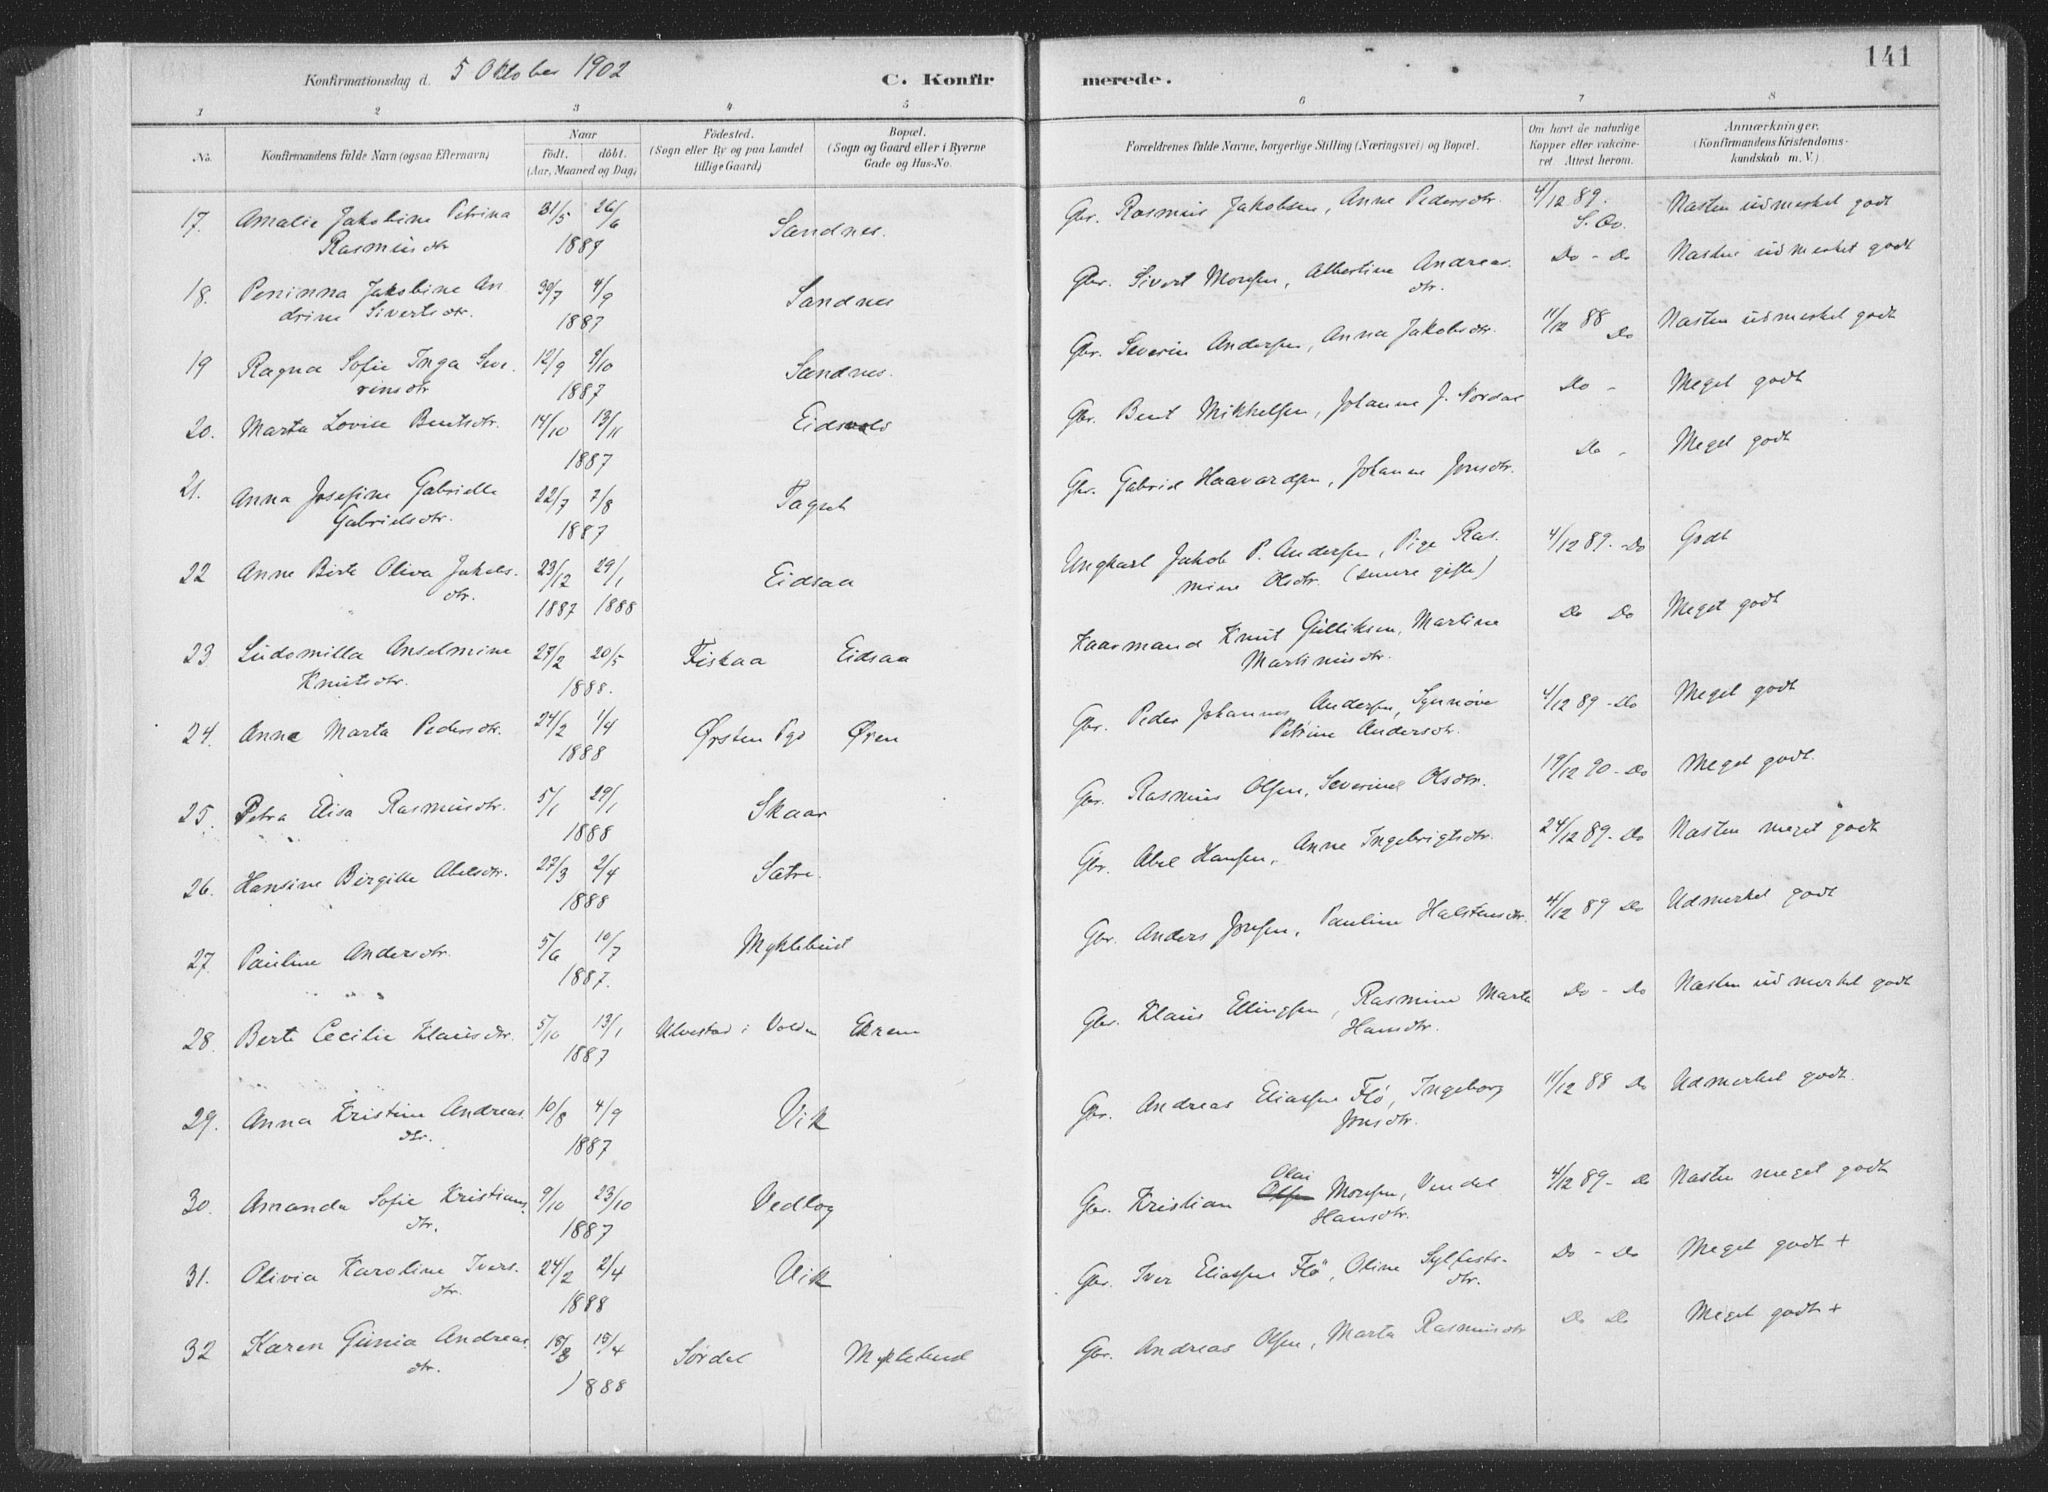 Konfirmationsdag d. 5 Oktober 1902 C. Konfirmerede. 141
1 2 3 4 5 6 7 8
No. Konfirmandens fulde Navn (ogsaa Efternavn) Naar födt. döbt. (Aar, Maaned og Dag) Födested. (Sogn eller By og paa Landet tillige Gaard) Bopæl. (Sogn og Gaard eller i Byerne Gade og Hus-No. Forældrenes fulde Navne, borgerlige Stilling (Næringsvei) og Bopæl. Om havt de naturlige Kopper eller vakcineret. Attest herom. Anmærkninger. (Konfirmandens Kristendomskundskab m. V.)
17. Amalie Jakobine Petrina 31/5 26/6 Sandnes. Gbr. Rasmus Jakobsen, Anne Pedersdtr. 4/12 89. Næsten udmerket godt
Rasmusdtr 1887 S. Ov.
18. Peninna Jakobine An 30/7 4/9 Sandnes Gbr. Sivert Monsen, Albertine Andreas. Do - Do Næsten udmerket godt
drine Sivertsdtr. 1887 dtr.
19 Ragna Sofie Inga Seve. 12/9 2/10 Sandnes. Gbr. Severin Andersen, Anna Jakobsdtr. 11/12 88 Do Næsten udmerket godt
rinsdtr 1887
20. Marta Lovise Bentsdtr. 14/10 13/11 Eidsvold Gbr. Bent Mikkelsen, Johanne J. Nordal Do - Meget godt
1887
21. Anna Josefine Gabrielle 22/7 7/8 Taget Gbr. Gabriel Haavardsen, Johanne Jonsdtr. Do - Meget godt
Gabrielsdtr. 1887
22 Anne Birte Oliva Jakobs. 23/12 29/1 Eidsaa Ungkarl Jakob P. Andersen, Pige Ras. 4/12 89. Do Godt
dtr. 1887 1888 mine Olsdtr. (senere gifte)
23 Ludomilla Anselmine 27/2 20/5 Fiskaa Eidsaa Kaarmand Knut Gulliksen, Martine Do Do Meget godt
Knutsdtr. 1888. Martinusdtr.
24. Anne Marta Pedersdtr. 24/2 1/4 Ørsten Pgd Øren Gbr. Peder Johannes Andersen, Synnøve 4/12 89 - Do Meget godt
1888 Petrine Andersdtr.
25. Petra Elisa Rasmusdtr. 5/1 29/1 Skaar Gbr. Rasmus Olsen, Severine Olsdtr. 19/12 90 - Do Meget godt.
1888
26. Hansine Birgitte Abelsdtr. 27/3 2/4 Sætre. Gbr. Abel Hansen, Anne Ingebrigtsdtr. 24/12 89. Do Næsten meget godt
1888
27. Pauline Andersdtr. 5/6 10/7 Myklebust Gbr. Anders Jonsen, Pauline Halstensdtr. 4/12 89 Do Udmerket godt
1887.
28. Berte Cecilie Klausdtr. 5/10 13/1 Ulvestad i Volden Ekrem Gbr. Klaus Ellingsen, Rasmine Marta Do - Do Næsten udmerket godt
1887 Hansdtr.
29. Anna Kristine Andreas 10/8 4/9 Vik Gbr. Andreas Eliassen Flö, Ingeborg 11/12 88 Do Udmerket godt.
dtr. 1887 Jonsdtr.
30. Amanda Sofie Kristians. 9/10 23/10 Vedlog Gbr. Kristian Olai Monsen, Vendel 4/12 89 - Do Næsten meget godt
dtr. 1887 Hansdtr.
31. Olivia Karoline Ivers. 24/2 2/4 Vik Gbr. Iver Eliassen Flö, Oline Sylfests- Do - Do Meget godt +
dtr. 1888 dtr.
32 Karen Gunia Andreas. 18/3 15/4 Sørdal Myklebust Gbr. Andreas Olsen, Marta Rasmusdtr Do Do Meget godt +
dtr. 1888